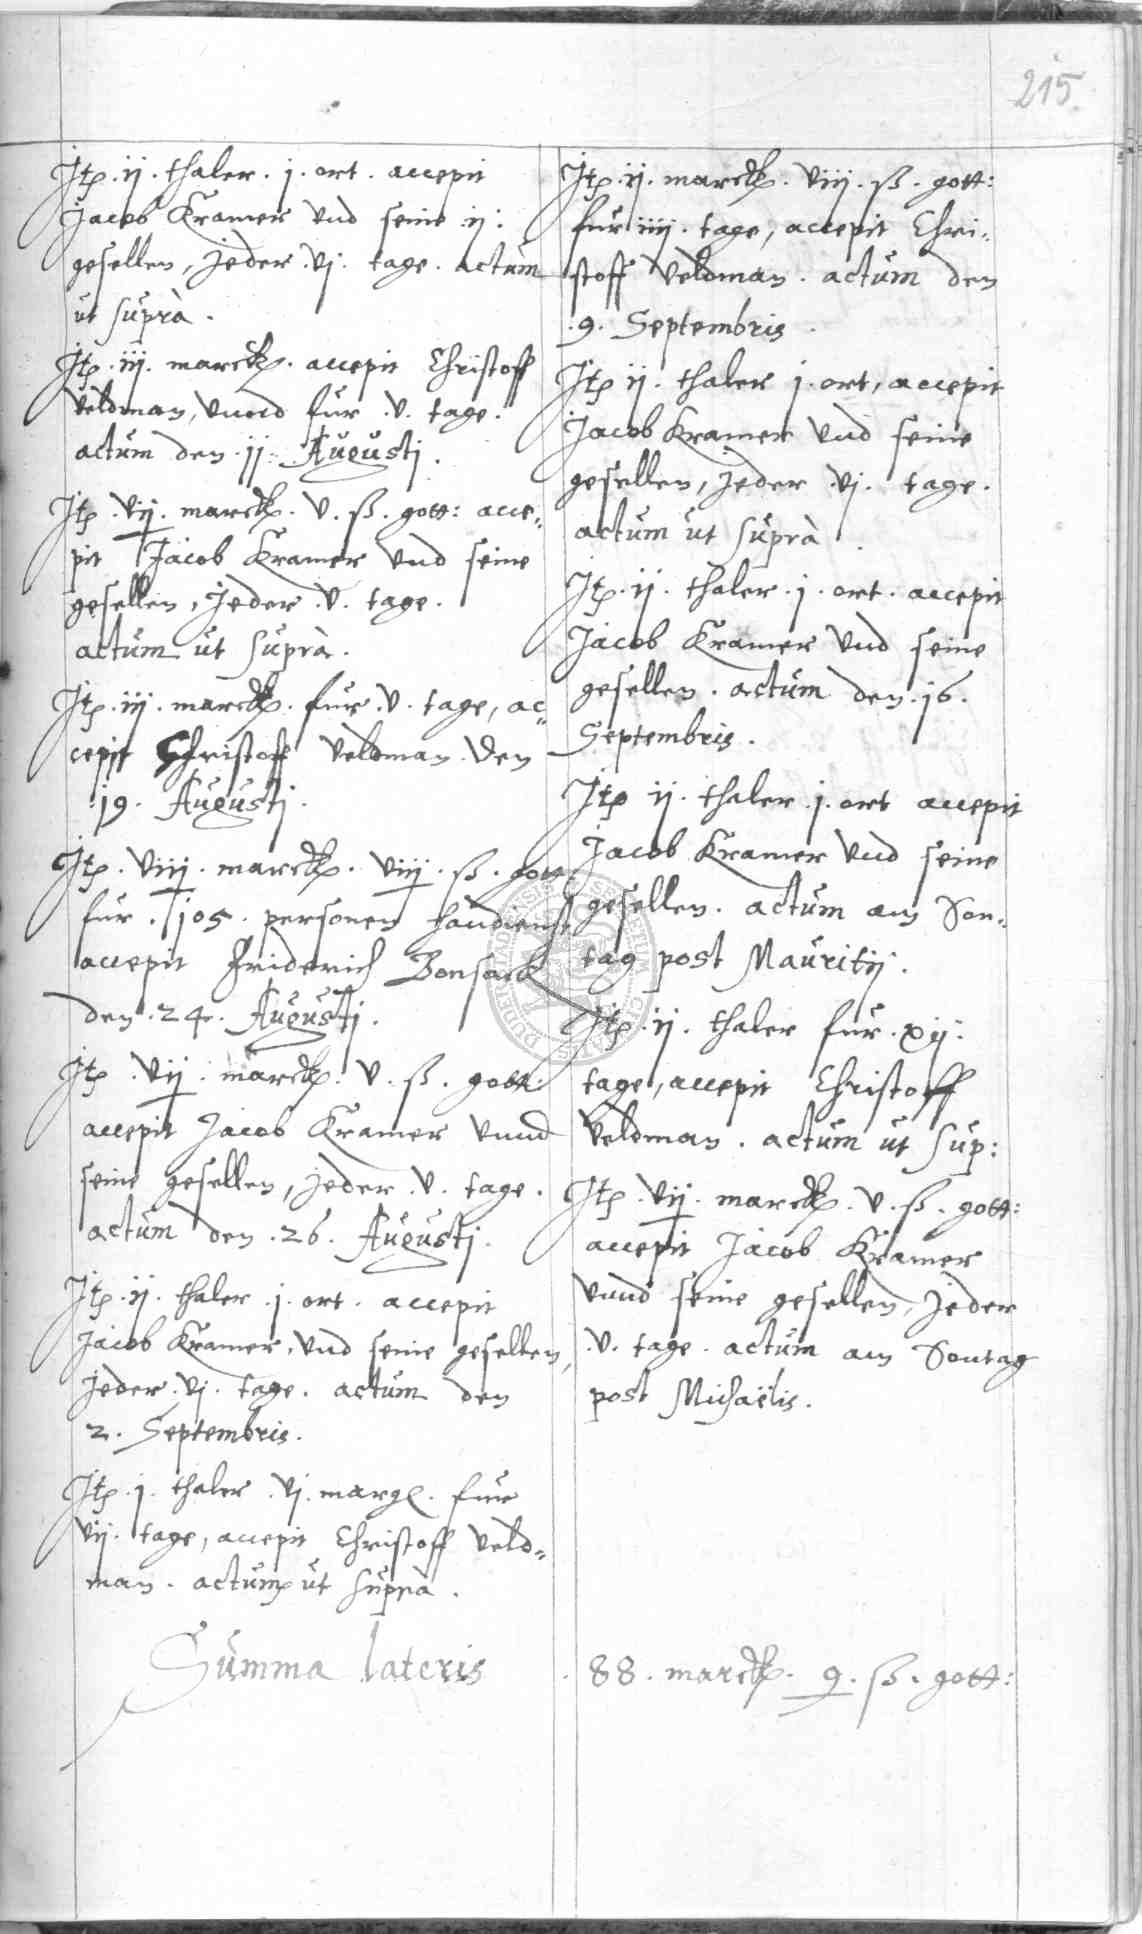 215.
Jtp. ij. thaler. j. ort. accepit
Jacob Kramer vnd seine ij:
gesellen, Jeder .vj. tage. actum
ut suprà.
Jtp. iij. marck. accepit Christoff
Veldman, vnnd fur .v. tage.
actum den .jj. Augustj.
Jtp. vij. marck. v. ß. gott: acce„
pit Jacob Kramer vnd seine
gesellen, Jeder .v. tage.
actum ut suprà.
Jtp. iij. marck. fur .v. tage, ac„
cepit Christoff Veldman. den
.j9. Augustj.
Jtp. viij. marck. viij. ß. gott:
fur .j05. personen handienst
accepit Friderich Bonsack
den .24. Augustj.
Jtp. vij. marck. v. ß. gott:
accepit Jacob Kramer vnnd
seine gesellen, Jeder .v. tage.
actum den .26. Augustj.
Jtp. ij. thaler .j. ort. accepit
Jacob Kramer, vnd seine gesellen,
Jeder .vj. tage. actum den
2. Septembris.
Jtp. j. thaler .vj. margl. fur
vij. tage, accepit Christoff Veld„
man. actum ut suprà.
Jtp. ij. marck. viij. ß. gott:
fur iiij. tage, accepit Chri„
stoff Veldman. actum den
.9. Septembris.
Jtp ij. thaler j. ort, accepit
Jacob Kramer vnd seine
gesellen, Jeder .vj. tage.
actum ut suprà.
Jtp. ij. thaler .j. ort. accepit
Jacob Kramer vnd seine
gesellen. actum den .j6.
Septembris.
Jtp ij. thaler .j. ort accepit
Jacob Kramer vnd seine
gesellen. actum am Son„
tag post Mauritij.
Jtp. ij. thaler fur .xij.
tage, accepit Christoff
Veldman. actum ut sup:
Jtp. vij. marck. v. ß. gott:
accepit Jacob Kramer
vnnd seine gesellen, Jeder
.v. tage. actum am Sontag
post Michaëlis.
Summa lateris . 88. marck. 9. ß. gott: